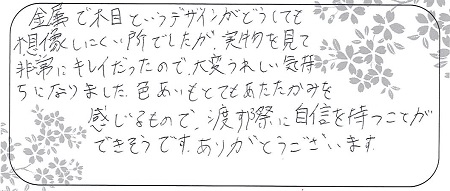 金属で木目というデザインがどうしても
想像しにくい所でしたが実物を見て
非常にキレイだったので、大変うれしい気持
ちになりました。色あいもとてもあたたかみを
感じるもので、渡す際に自信を持つことが
できそうです。ありがとうございます。